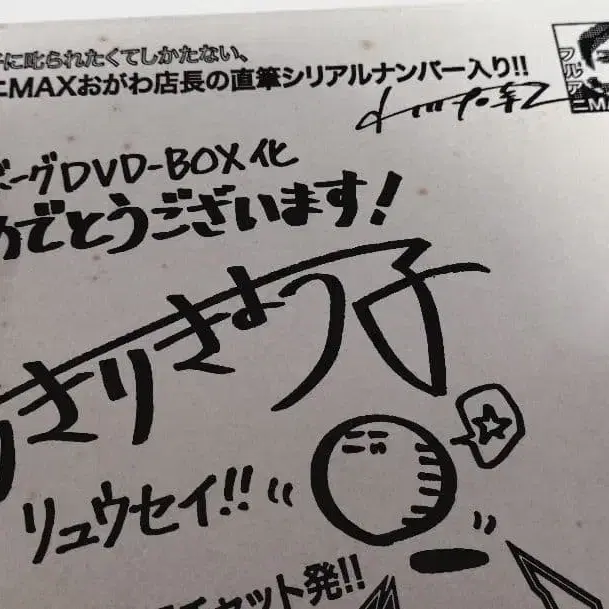 に叱られたくてしかたない、
ニMAXおがわ店長の直筆シリアルナンバー入り!!
フルアニMA
バーグDVD-BOX化
めでとうございます!
きりきょう子
リュウセイ!!
☆
チャット発!!